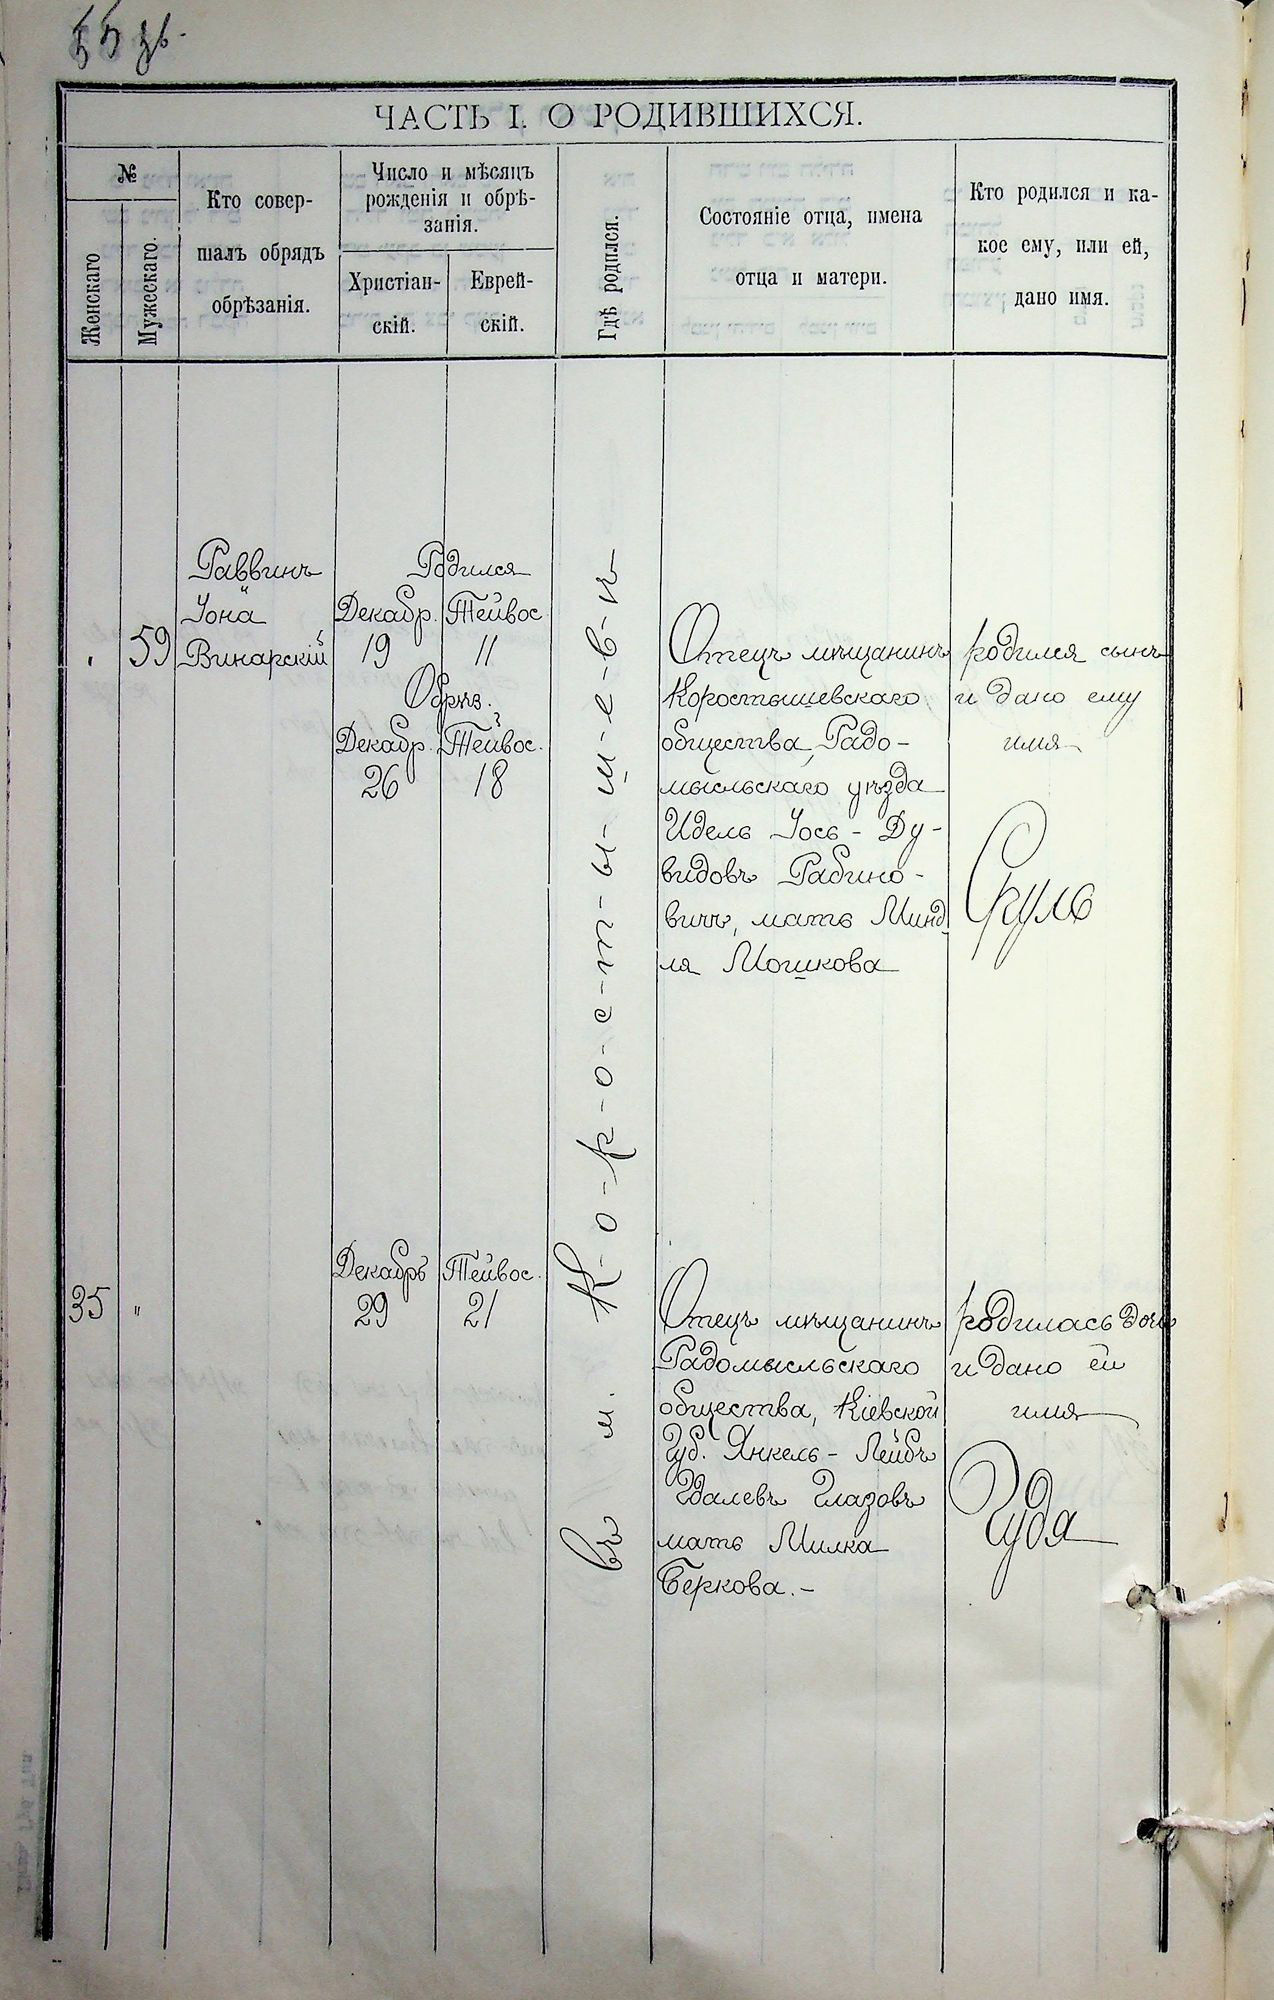 ЧАСТЬ I. О РОДИВШИХСЯ.
№
Женскаго
Мужескаго.
Кто совер-
шалъ обрядъ
обрѣзанія.
Число и мѣсяцъ
рожденія и обрѣ-
занія.
Христіан-
скій.
Еврей-
скій.
Гдѣ родился.
Состояніе отца, имена
отца и матери.
Кто родился и ка-
кое ему, или ей,
дано имя.
59
Раввинъ
Іона
Винарскій
Родился
Декабр. Тейвос.
19 11
Обрѣз.
Декабр. Тейвос.
26 18
въ м. К-о-р-о-с-т-ы-ш-е-в-ѣ
Отецъ мѣщанинъ
Коростышевскаго
общества, Радо-
мысльскаго уѣзда
Идель Іось - Ду-
видовъ Рабино-
вичъ, мать Минд-
ля Мошкова
родился сынъ
и дано ему
имя
Сруль
35 "
Декабръ Тейвос.
29 21
Отецъ мѣщанинъ
Радомысльскаго
общества, Кіевской
Губ. Янкель - Лейбъ
Гдалевъ Глазовъ
мать Милка
Беркова. -
родилась дочь
и дано ей
имя
Гудя